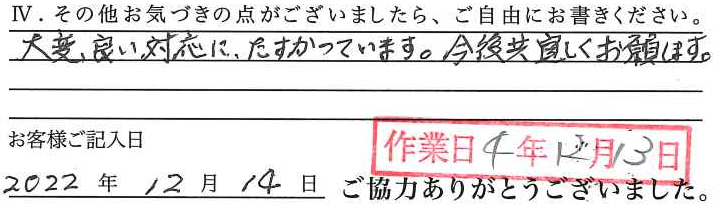 Ⅳ．その他お気づきの点がございましたら、ご自由にお書きください。
大変、良い対応に、たすかっています。今後共宜しくお願します。
お客様ご記入日
作業日 4年12月13日
2022 年 12 月 14 日 ご協力ありがとうございました。